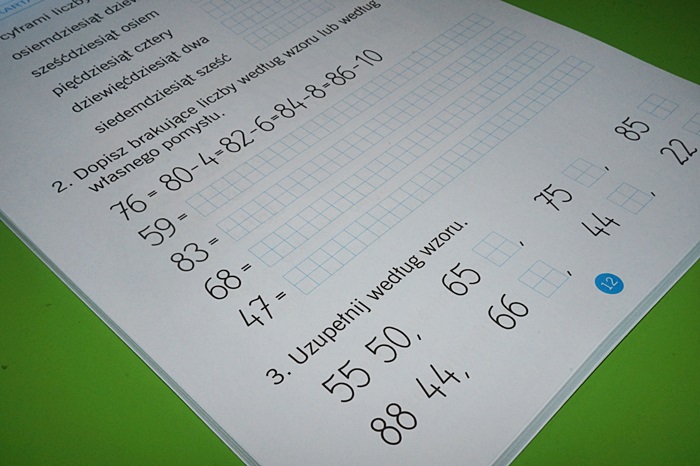 KARTA
cyframi liczby
osiemdziesiąt
sześćdziesiąt osiem
pięćdziesiąt cztery
dziewięćdziesiąt dwa
siedemdziesiąt sześć
2. Dopisz brakujące liczby według wzoru lub według
własnego pomysłu.
76 = 80-4=82-6=84-8=86-10
59 =
83 =
68 =
47 =
3. Uzupełnij według wzoru.
55 50, 65 , 75 , 85
88 44, 66 , 44 , 22
12